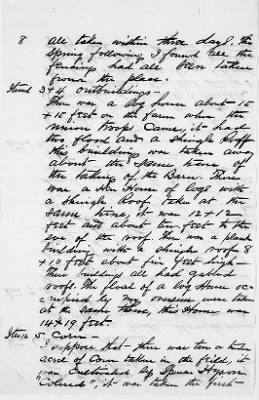 8 all taken within three days, the
Spring following I found all the
fencing had all been taken
from the place.
Item 3 + 4 outbuildings -
There was a log house about 15
+ 15 feet on the farm when the
union troops came, it had
two floors and a Shingle Roof
this building was taken away
about the same time of
the taking of the Barn. There
was a Hen House of logs with
a Shingle Roof taken at the
same time, it was 12 + 12
feet and about ten feet to the
eve of the roof. there was a plank
building with a shingle roof 8
+ 10 feet about five feet high -
these buildings all had gabled
roofs. The floor of a log House oc-
cupied by my overseer were taken
at the same time, this House was
14 + 19 feet.
Item 5 Corn -
I suppose that there was two or three
acres of Corn taken in the field, it
was cultivated by Spencer
Colored", it was taken the first